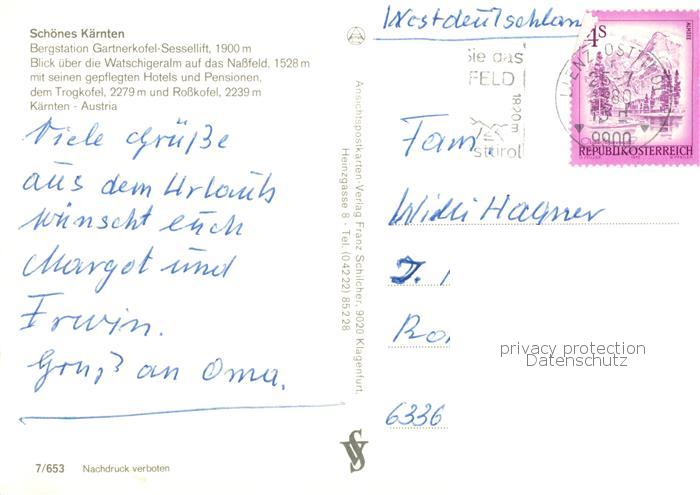 Schönes Kärnten
Bergstation Gartnerkofel-Sessellift, 1900 m
Blick über die Watschigeralm auf das Naßfeld, 1528 m
mit seinen gepflegten Hotels und Pensionen,
dem Trogkofel, 2279 m und Roßkofel, 2239 m
Kärnten - Austria
Viele Grüße
aus dem Urlaub
wünscht euch
Margot und
Erwin.
Gruß an Oma.
7/653 Nachdruck verboten
Ansichtspostkarten-Verlag Franz Schilcher, 9020 Klagenfurt,
Heinzgasse 8 - Tel. (04222) 85228
Westdeutschlan
Sie das
FELD
1820m
stirol
4s
ALMSEE
LIENZ, OSTTIROL
9900
REPUBLIK ÖSTERREICH
Fam.
Willi Hagner
6336
privacy protection
Datenschutz